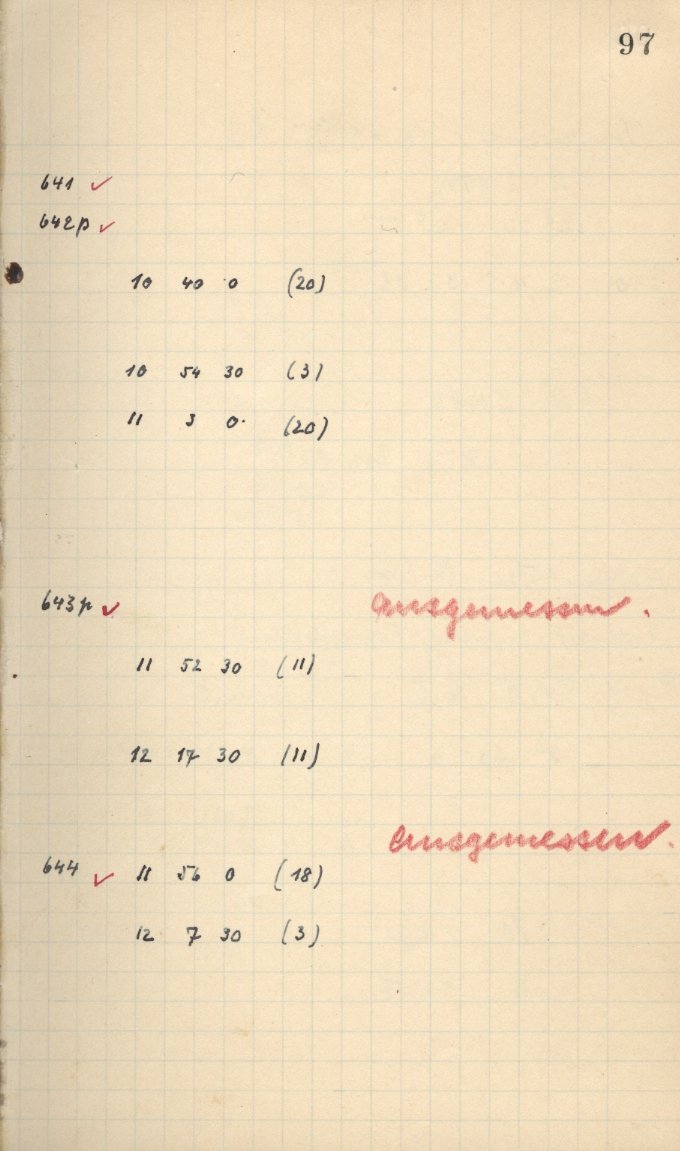 97
641 ✓
642p ✓
10 40 0 (20)
10 54 30 (3)
11 3 0 (20)
643p ✓ Ausgemessen.
11 52 30 (11)
12 17 30 (11)
Ausgemessen.
644 ✓ 11 56 0 (18)
12 7 30 (3)